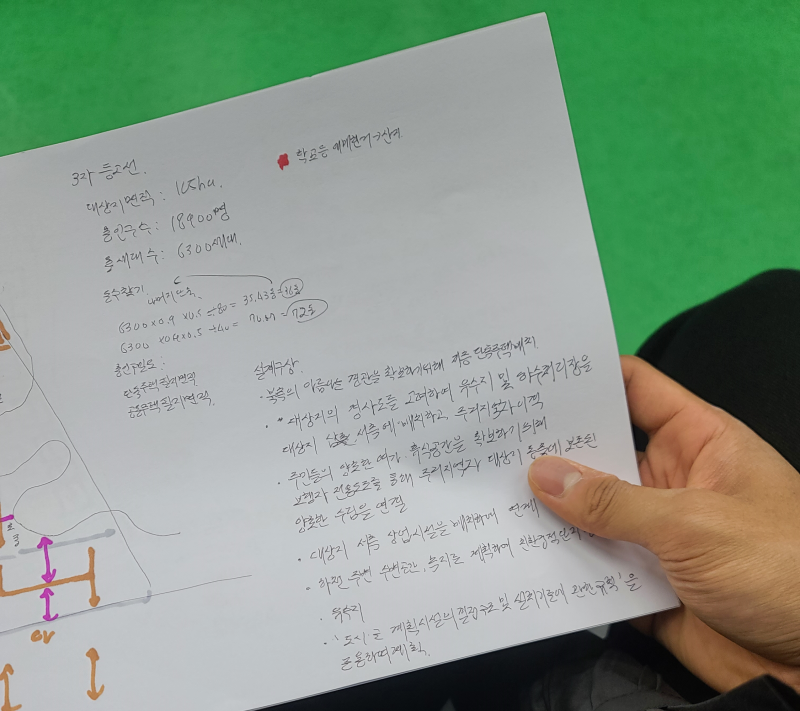 3각 등고선.
학교등 예제한거 가산거.
대상지면적 : 165ha.
총인구수 : 18900명
총세대수 : 6300세대.
동수찾기
6300 x 0.9 x 0.5 ÷ 80 = 35.43동 = 36동
6300 x 0.9 x 0.5 ÷ 40 = 70.87 = 72동
총인구밀도 :
단독주택필지면적
공동주택필지면적.
설계구상.
· 북측의 아름다운 경관을 확보하기위해 저층 단독주택배치
· 대상지의 경사도를 고려하여 유수지 및 하수처리장을
대상지 남측 서측에 배치하고, 주거지역과 이격
· 주민들의 양호한 여가, 휴식공간을 확보하기위해
보행자 전용도로를 통해 주거지역과 대상지 동측에 보존된
양호한 수림을 연결
· 대상지 서측 상업시설을 배치하여 연계
· 하천 주변 수변공간, 녹지를 계획하여 친환경적단지
· 유수지
· '도시군계획시설의 결정구조 및 설치기준에 관한 규칙'을
준용하여 계획.